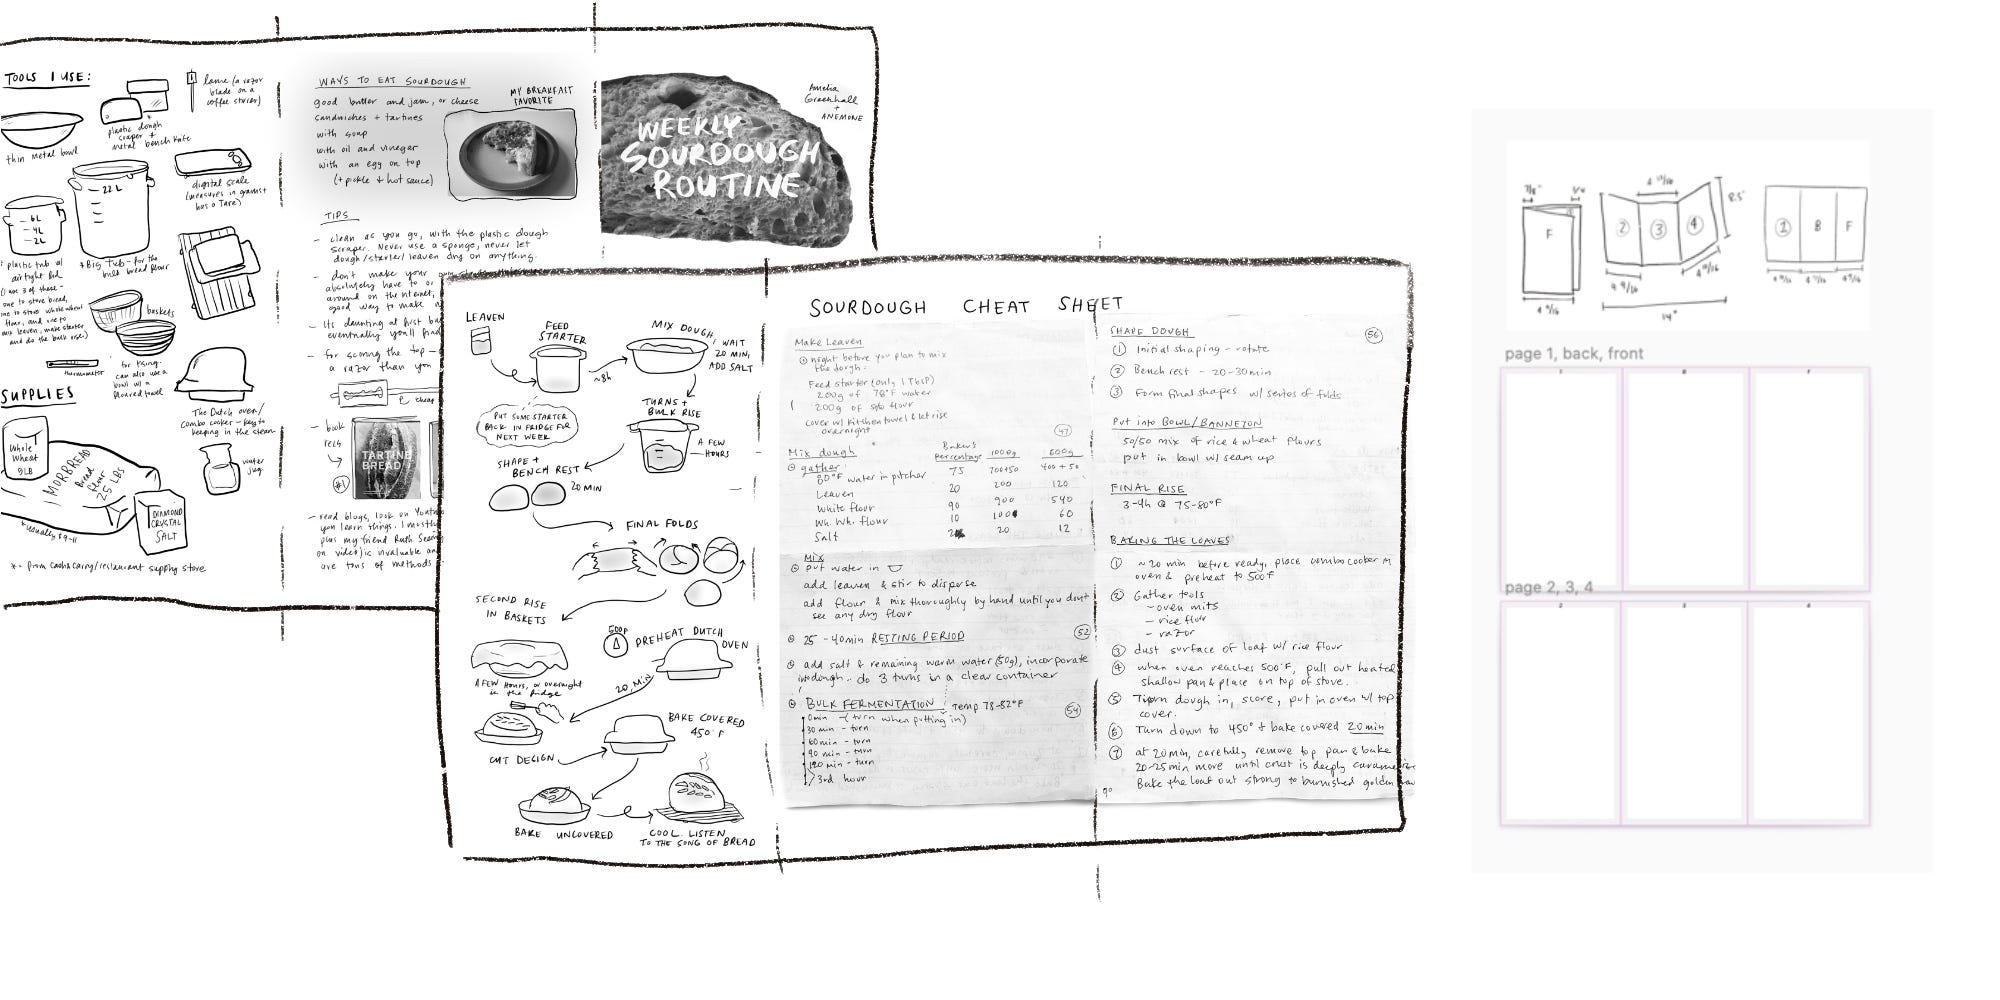 TOOLS I USE:
lame (a razor
blade on a
coffee stirrer)
thin metal bowl
plastic dough
scraper +
metal bench knife
22 L
digital scale
(measures in grams +
has a Tare)
6L
4L
2L
plastic tub w/
airtight lid
(I use 3 of these -
one to store bread,
one to store whole wheat
flour, and one to
mix leaven, make starter
and do the bulk rise)
*Big Tub - for the
bulk bread flour
baskets
for rising -
can also use a
bowl w/ a
floured towel
thermometer
The Dutch oven/
Combo cooker - key to
keeping in the steam
SUPPLIES
Whole
Wheat
9LB
MORBREAD
Bread
flour
25 LBS
*usually $9-11
DIAMOND
CRYSTAL
SALT
water
jug
*- from cash & carry/restaurant supply store
WAYS TO EAT SOURDOUGH
good butter and jam, or cheese
sandwiches + tartines
with soup
with oil and vinegar
with an egg on top
(+ pickle + hot sauce)
MY BREAKFAST
FAVORITE
TIPS
- clean as you go, with the plastic dough
scraper. Never use a sponge, never let
dough/starter/leaven dry on anything.
- don't make your
absolutely have to or
around on the internet,
good way to make
- Its daunting at first
eventually you'll find
- for scoring the top -
a razor than you
cheap
- book
recs
#1
TARTINE
BREAD
- read blogs, look on
you learn things. I mostly
plus my friend Ruth
on video) is invaluable
are tons of methods
WEEKLY
SOURDOUGH
ROUTINE
Amelia
Greenhall
+
ANEMONE
LEAVEN
FEED
STARTER
~8h
MIX DOUGH,
WAIT
20 MIN,
ADD SALT
PUT SOME STARTER
BACK IN FRIDGE FOR
NEXT WEEK
TURNS +
BULK RISE
A FEW
HOURS
SHAPE +
BENCH REST
20 MIN
FINAL FOLDS
SECOND RISE
IN BASKETS
A FEW HOURS, or overnight
in the fridge
500F
PREHEAT DUTCH
OVEN
20 MIN
CUT DESIGN
BAKE COVERED
450°F
BAKE UNCOVERED
COOL. LISTEN
TO THE SONG OF BREAD
SOURDOUGH CHEAT SHEET
Make Leaven
night before you plan to mix
the dough:
Feed starter (only 1 Tbsp)
200g of 78°F water
200g of 50/50 flour
cover w/ kitchen towel & let rise
overnight
47
Mix dough
Baker's
percentage 1000g 600g
gather
80°F water in pitcher 75 700+50 400+50
Leaven 20 200 120
White flour 90 900 540
Wh. Wh. flour 10 100 60
Salt 2 20 12
MIX
put water in
add leaven & stir to disperse
add flour & mix thoroughly by hand until you dont
see any dry flour
25 - 40min RESTING PERIOD
52
add salt & remaining warm water (50g), incorporate
into dough.. do 3 turns in a clear container
BULK FERMENTATION: Temp 78-82°F
54
0min - (turn when putting in)
30 min - turn
60 min - turn
90 min - turn
120 min - turn
3rd hour
SHAPE DOUGH
56
1 Initial shaping - rotate
2 Bench rest - 20-30min
3 Form final shapes w/ series of folds
Put into BOWL/BANNETON
50/50 mix of rice & wheat flours
put in bowl w/ seam up
FINAL RISE
3-4h @ 75-80°F
BAKING THE LOAVES
1 ~20 min before ready, place combo cooker in
oven & preheat to 500°F
2 Gather tools
- oven mits
- rice flour
- razor
3 dust surface of loaf w/ rice flour
4 when oven reaches 500°F, pull out heated
shallow pan & place on top of stove.
5 Turn dough in, score, put in oven w/ top
cover.
6 Turn down to 450° + bake covered 20min
7 at 20min, carefully remove top pan & bake
20-25min more until crust is deeply caramelize
Bake the loaf out strong to burnished golden
90
7/8"
F
4 9/16
2
3
4
4 13/16
8.5"
4 9/16
14"
1
B
F
page 1, back, front
1
B
F
page 2, 3, 4
2
3
4